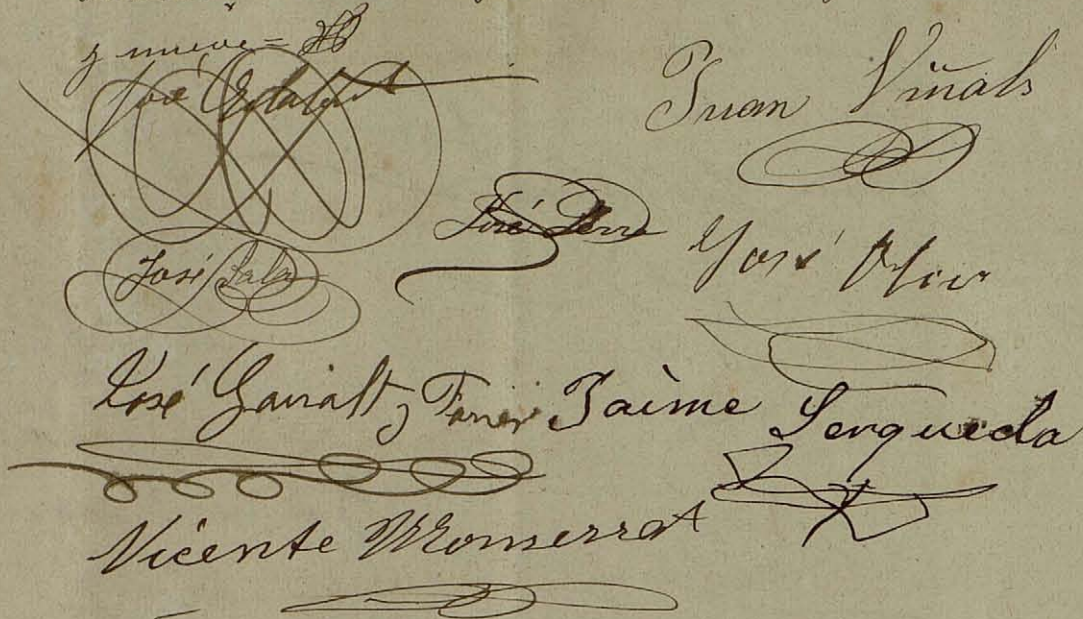 y nueve =
José
Juan Viñals
José Serra
José Sala
José Oliv
José Garralt y Ferrer
Jaime Serqueda
Vicente Monserrat